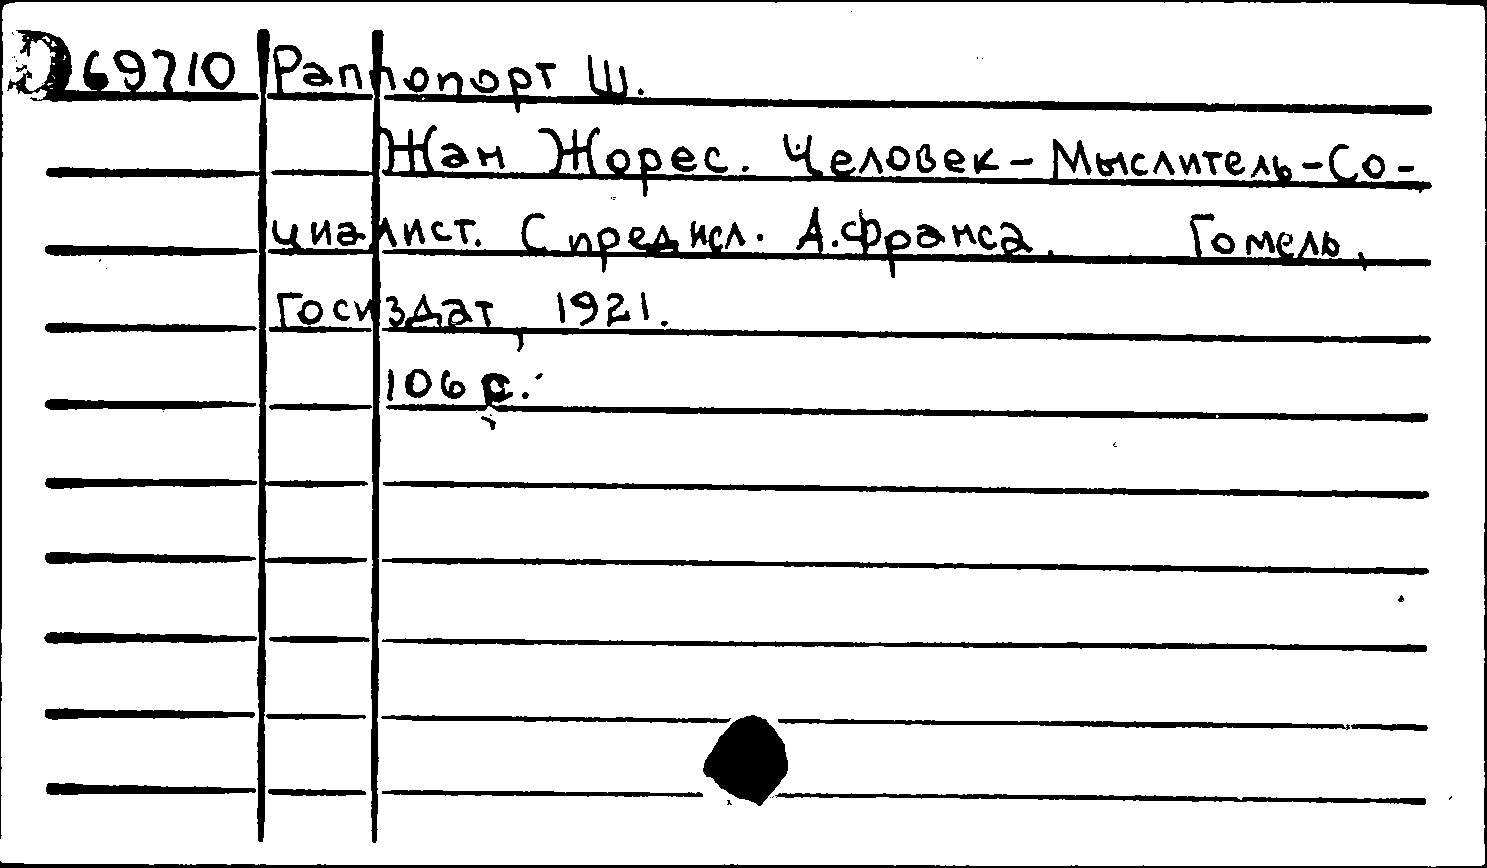 D 69710 Раппопорт Ш.
Жан Жорес. Человек-Мыслитель-Со-
циалист. С предисл. А.Франса. Гомель,
Госиздат, 1921.
106 с.